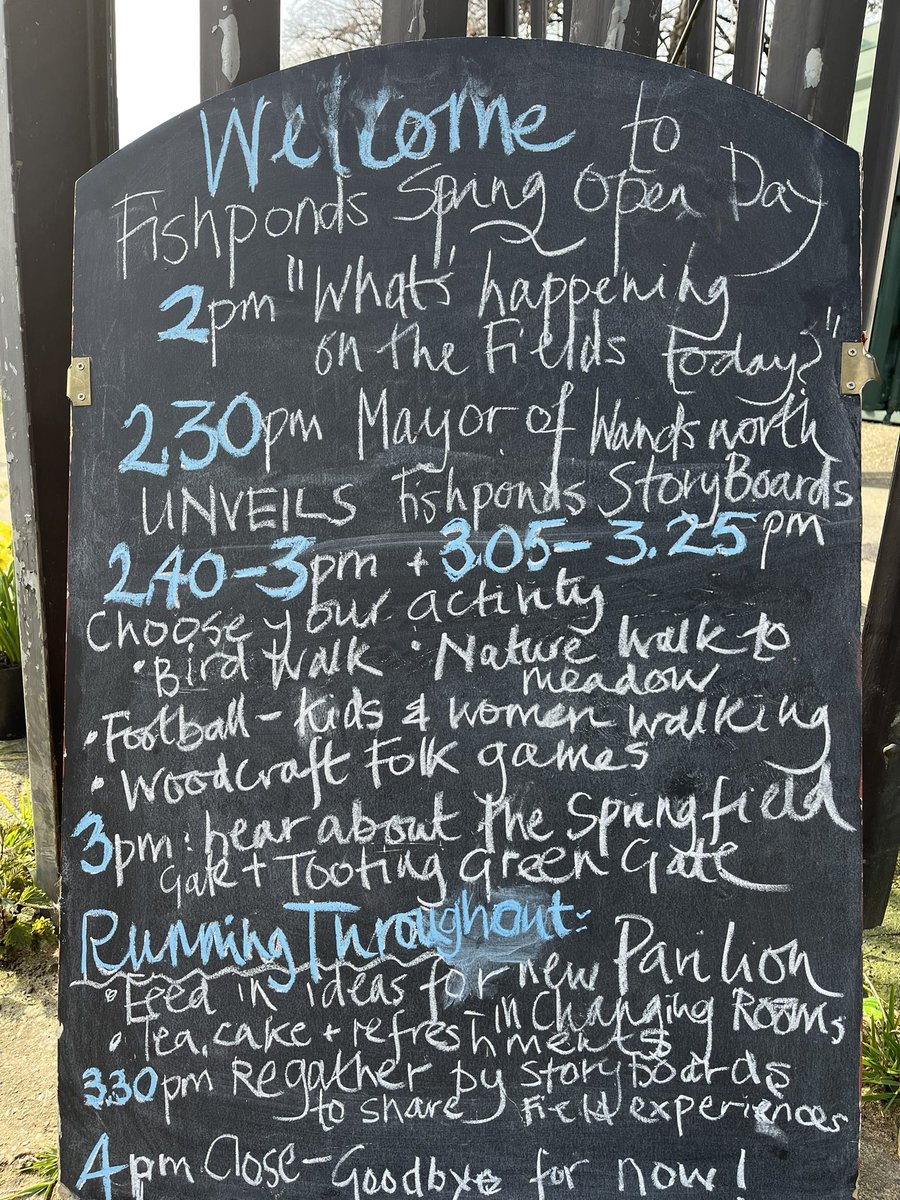 Welcome to
Fishponds Spring Open Day
2pm "What's happening
on the Fields today?"
2.30pm Mayor of Wandsworth
UNVEILS Fishponds StoryBoards
2.40-3pm + 3.05-3.25pm
Choose your activity
• Bird Walk • Nature walk to
meadow
• Football - kids & women walking
• Woodcraft Folk games
3pm: hear about the Springfield
Gate + Tooting Green Gate
Running Throughout:
• Feed in ideas for new Pavilion
• Tea, cake + refreshments - in Changing Rooms
3.30pm Regather by Storyboards
to share field experiences
4pm Close - Goodbye for now!